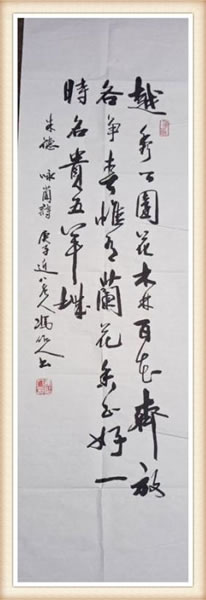 越秀公園花木林百花齊放
各争春惟有蘭花香正好一
時名貴五羊城
朱德 咏蘭詩 庚子 馮 人书